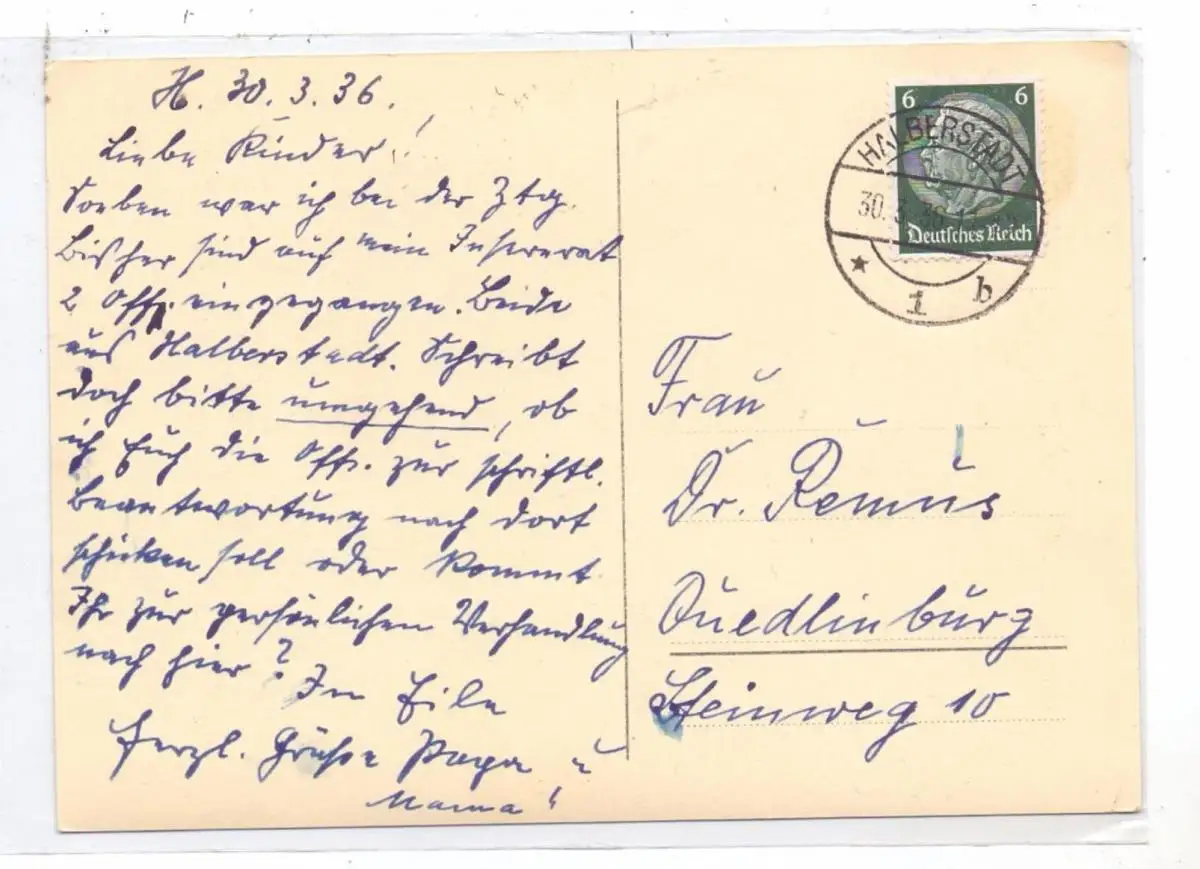 H. 30.3.36.
Liebe Kinder!
Soeben war ich bei der Ztg.
Bisher sind auf mein Insererat
2 Off. eingegangen. Beide
aus Halberstadt. Schreibt
doch bitte umgehend, ob
ich Euch die Off. zur schriftl.
Beantwortung nach dort
schicken soll oder kommt
Ihr zur persönlichen Verhandlung
nach hier? In Eile
herzl. Grüße Papa u
Mama!
6 6
Deutsches Reich
HALBERSTADT
30.3.36
1 b
Frau
Dr. Remus
Quedlinburg
Steinweg 10